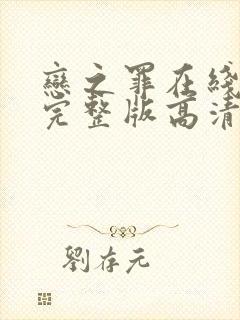 戀之罪在綫
完整版高清
劉存元